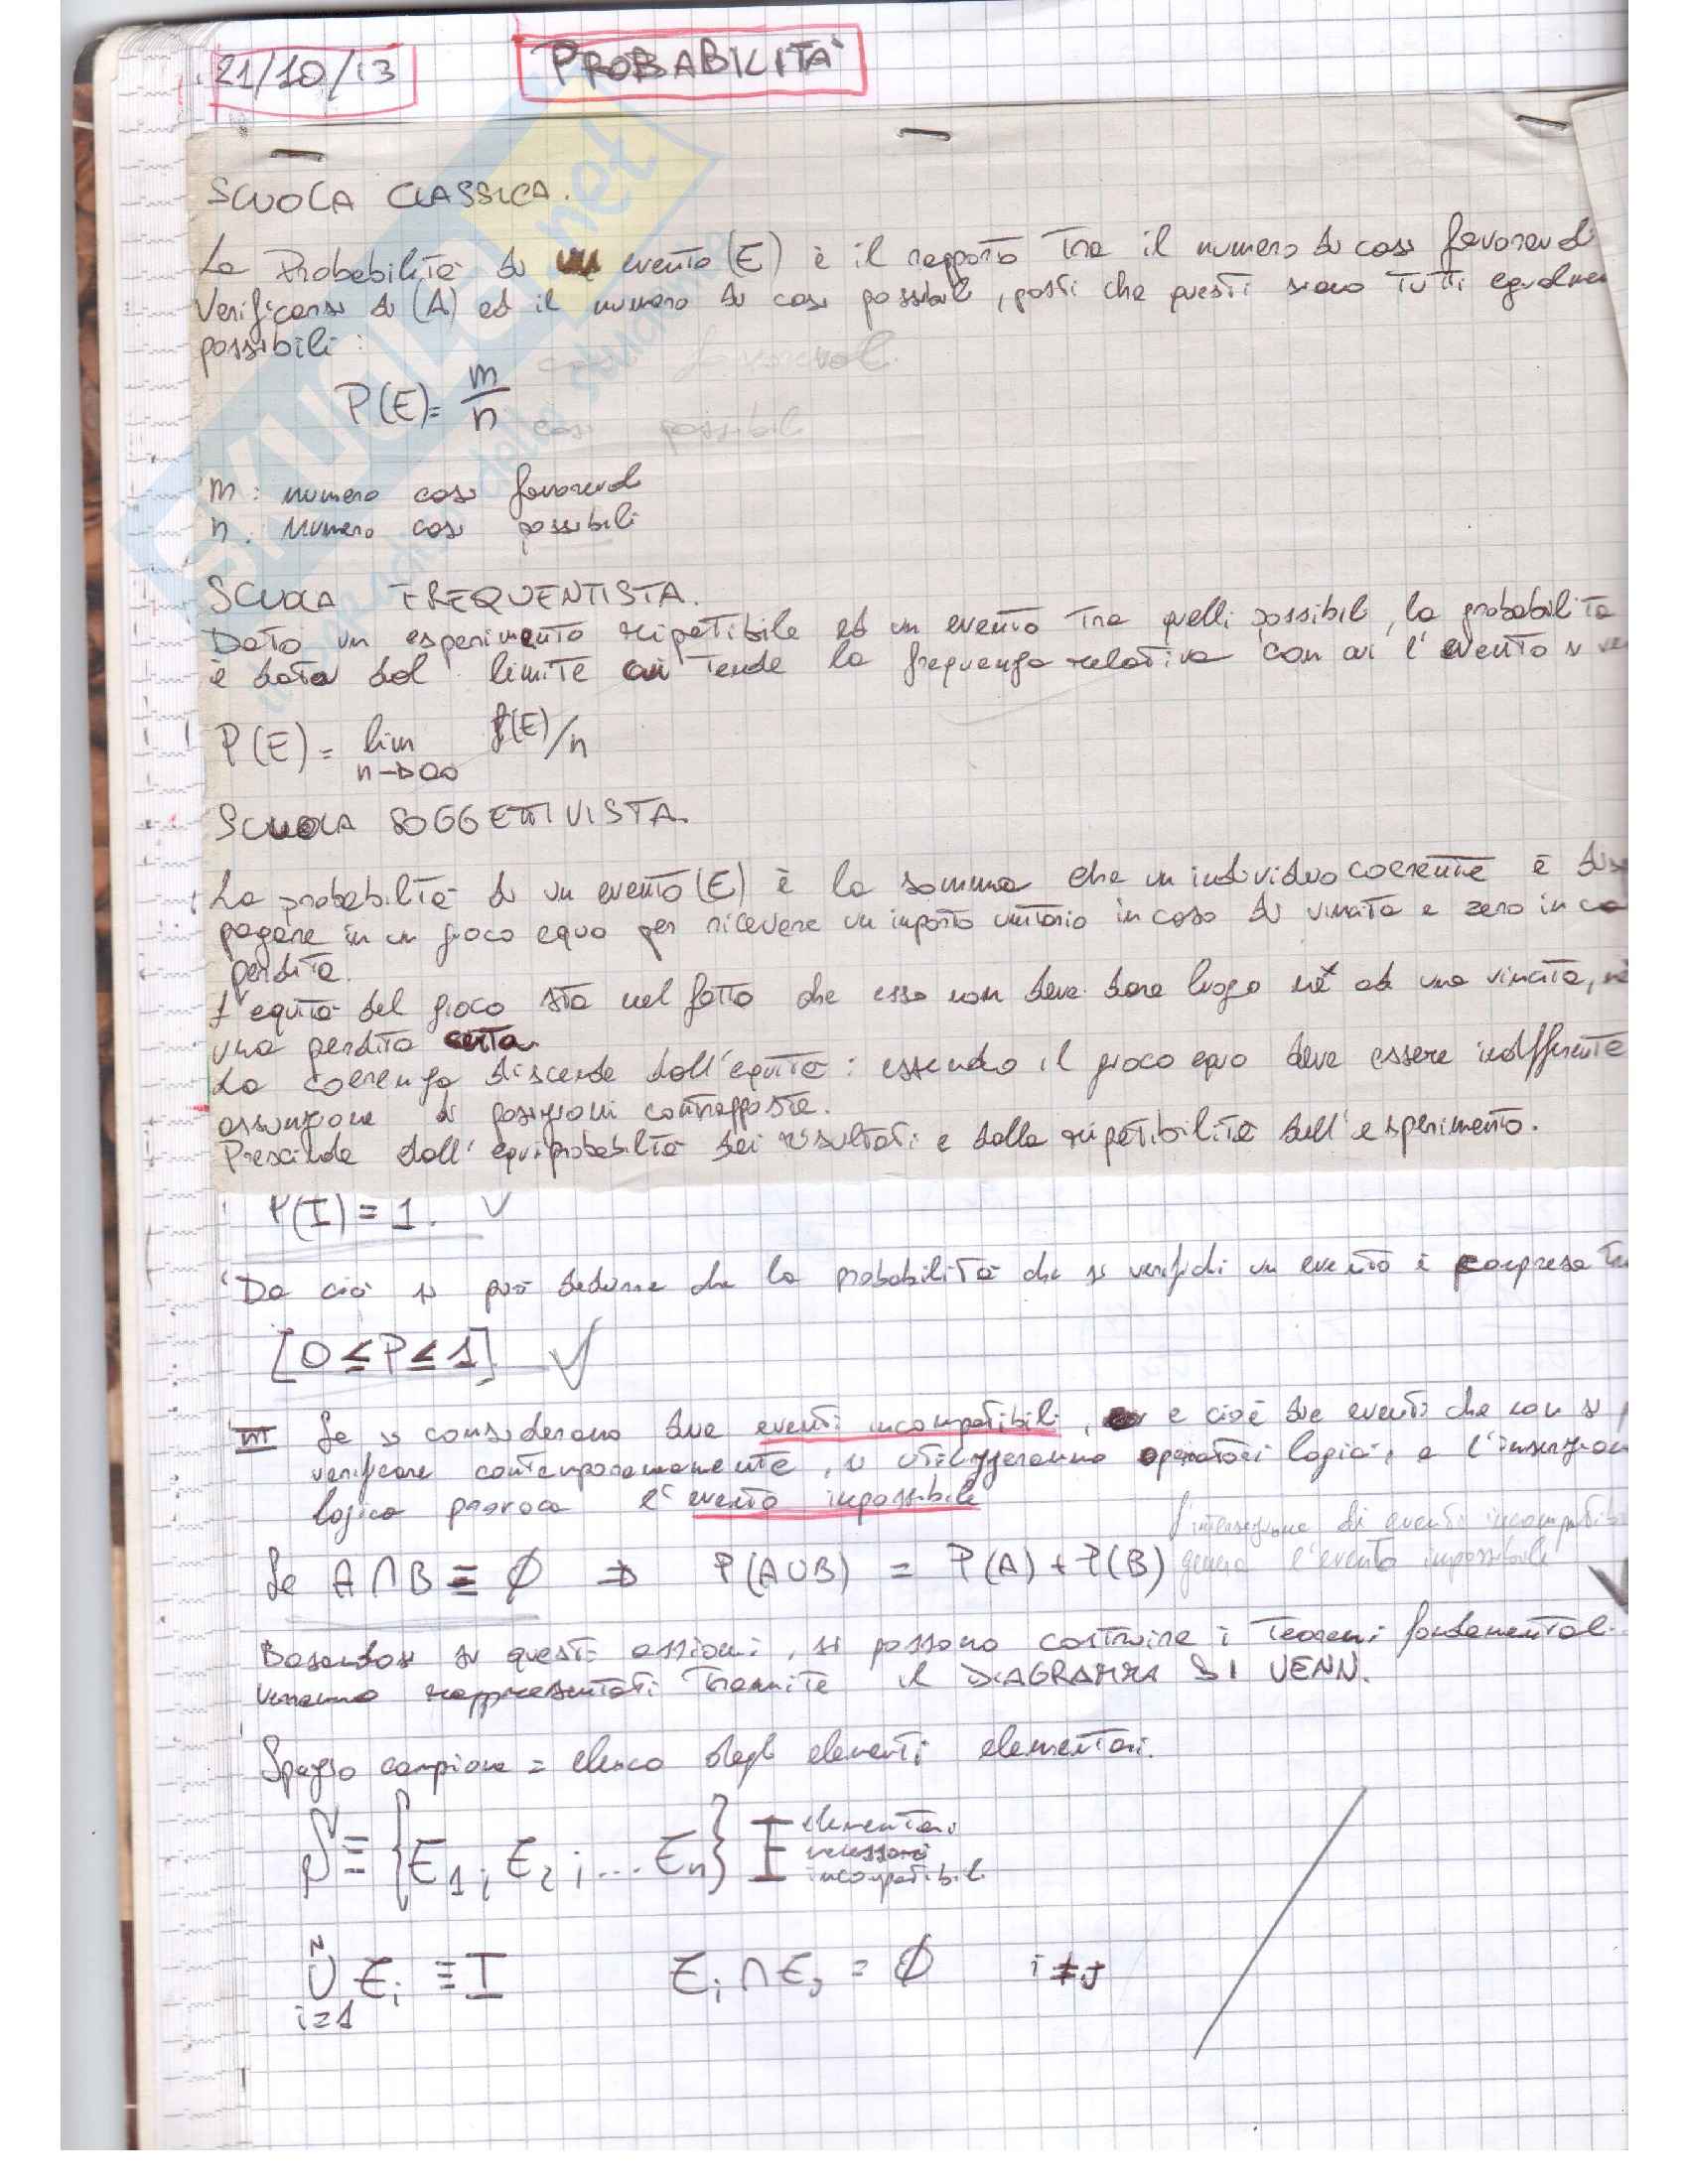 21/10/13
PROBABILITÀ
SCUOLA CLASSICA.
La Probabilità di un evento (E) è il rapporto tra il numero di casi favorevoli
verificarsi di (A) ed il numero di casi possibili, posti che questi siano tutti egualmen
possibili:
P(E) = m/n
casi favorevoli
casi possibili
m: numero casi favorevoli
n: numero casi possibili
SCUOLA FREQUENTISTA.
Dato un esperimento ripetibile ed un evento tra quelli possibili, la probabilità
è data dal limite cui tende la frequenza relativa con cui l'evento si ver
P(E) = lim n→∞ f(E)/n
SCUOLA SOGGETTIVISTA.
La probabilità di un evento (E) è la somma che un individuo coerente è dis
pagare in un gioco equo per ricevere un importo unitario in caso di vincita e zero in ca
perdita.
L'equità del gioco sta nel fatto che esso non deve dare luogo né ad una vincita, né
una perdita certa.
La coerenza discende dall'equità: essendo il gioco equo deve essere indifferente
assunzione di posizioni contrapposte.
Prescinde dall'equiprobabilità dei risultati e dalla ripetibilità dell'esperimento.
P(I) = 1.
Da ciò si può dedurre che la probabilità che si verifichi un evento è compresa tra
[0 ≤ P ≤ 1]
III Se si considerano due eventi incompatibili, e cioè due eventi che non si p
verificare contemporaneamente, si utilizzeranno operatori logici, e l'inserzion
logica provoca l'evento impossibile
l'intersezione di eventi incompatibi
Se A∩B ≡ ∅ ⇒ P(A∪B) = P(A) + P(B) genera l'evento impossibile
Basandosi su questi assiomi, si possono costruire i Teoremi fondamentali.
verranno rappresentati tramite il DIAGRAMMA DI VENN.
Spazio campione = elenco degli elementi elementari.
S ≡ {E1; E2; ... En} I elementari
necessari
incompatibili
N
∪ Ei ≡ I Ei ∩ Ej = ∅ i ≠ J
i=1